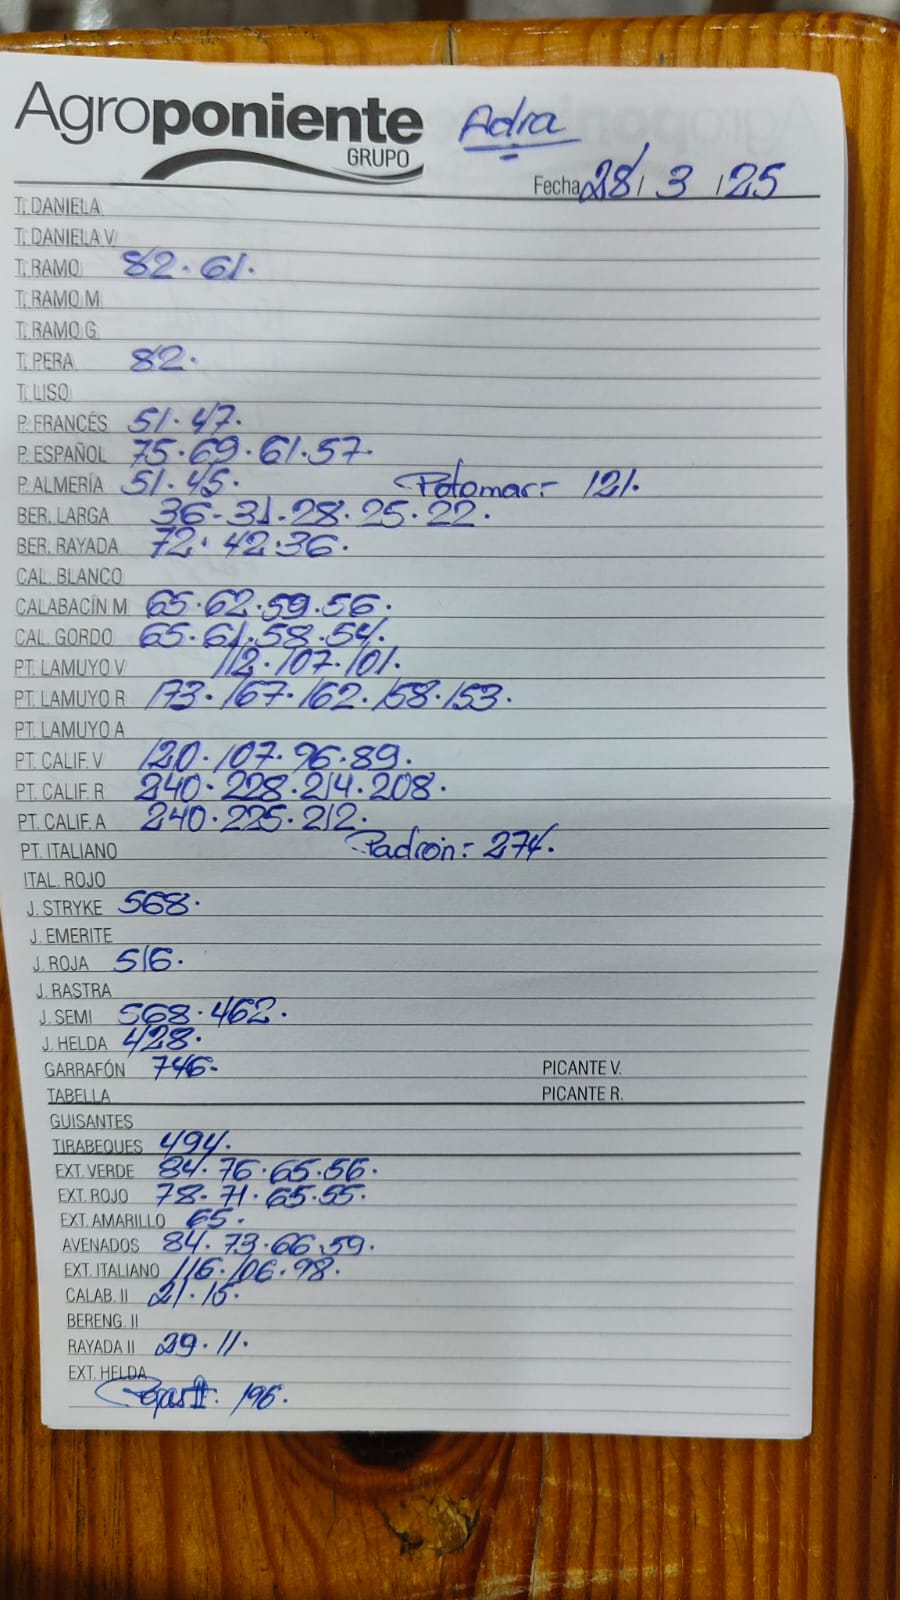 Agroponiente Adra
GRUPO
Fecha 28/ 3 /25
T. DANIELA
T. DANIELA V
T. RAMO 82.61.
T. RAMO M.
T. RAMO G.
T. PERA 82.
T. LISO
P. FRANCÉS 51.47.
P. ESPAÑOL 75.69.61.57.
P. ALMERÍA 51.45. Potomar:- 121.
BER. LARGA 36-31.28.25.22.
BER. RAYADA 72.42.36.
CAL. BLANCO
CALABACÍN M 65.62.59.56.
CAL. GORDO 65.61.58.54.
PT. LAMUYO V 112.107.101.
PT. LAMUYO R 173.167.162.158.153.
PT. LAMUYO A
PT. CALIF. V 120.107.96.89.
PT. CALIF. R 240.228.214.208.
PT. CALIF. A 240.225.212.
PT. ITALIANO Padrón:- 274.
ITAL. ROJO
J. STRYKE 568.
J. EMERITE
J. ROJA 516.
J. RASTRA
J. SEMI 568.462.
J. HELDA 428.
GARRAFÓN 746. PICANTE V.
TABELLA PICANTE R.
GUISANTES
TIRABEQUES 494.
EXT. VERDE 84.76.65.56.
EXT. ROJO 78.71.65.55.
EXT. AMARILLO 65.
AVENADOS 84.73.66.59.
EXT. ITALIANO 116.106.98.
CALAB. II 21.15.
BERENG. II
RAYADA II 29.11.
EXT. HELDA
II. 196.